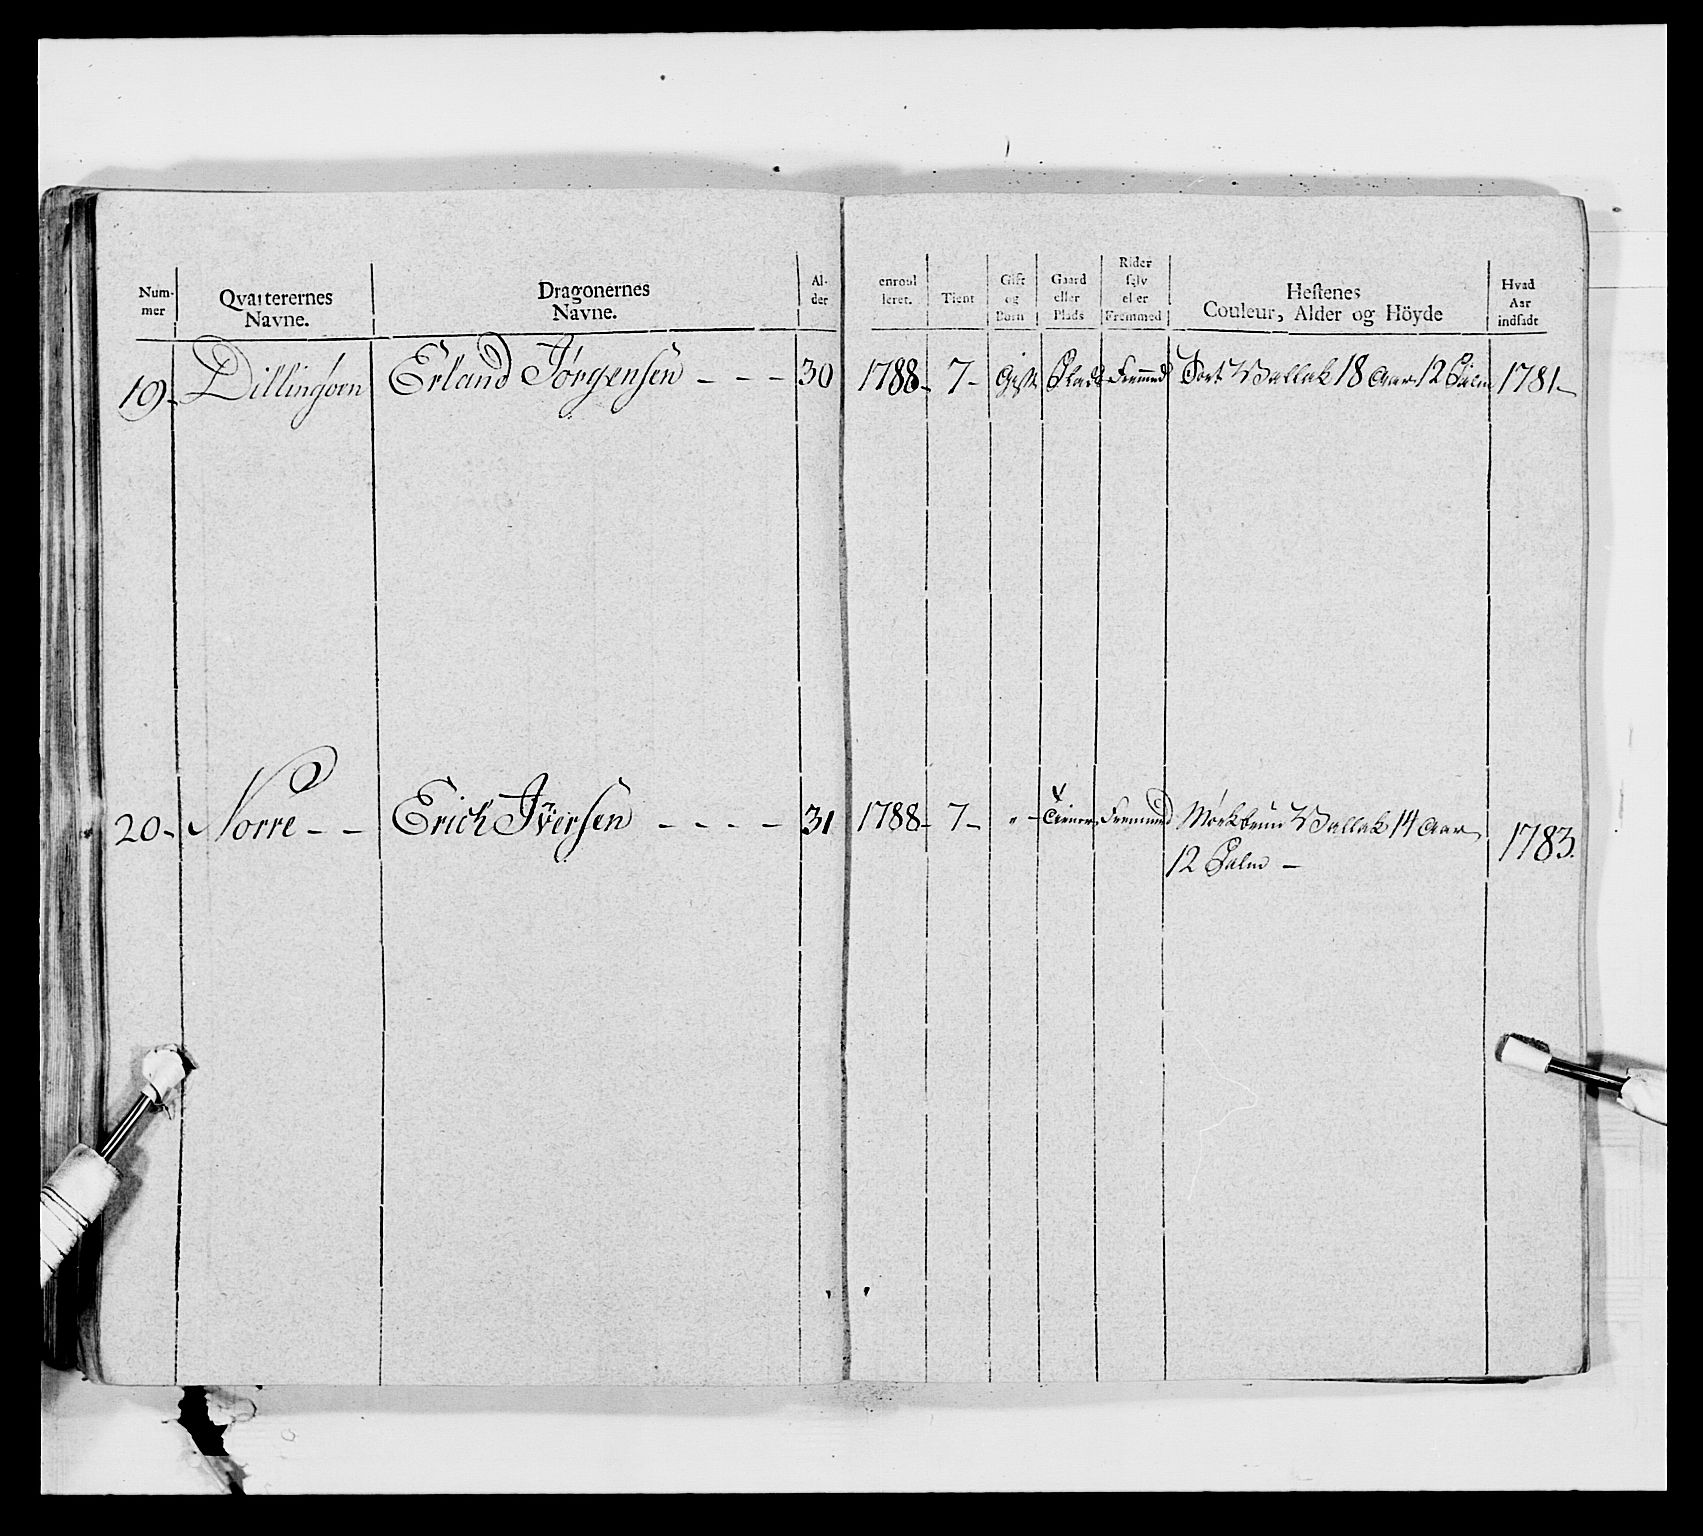 Num-
mer
Qvarterernes
Navne.
Dragonernes
Navne.
Al-
der
enroul
leret.
Tient
Gift
og
Born
Gaard
eller
Plads
Rider
selv
eller
Fremmed
Hestenes
Couleur, Alder og Höyde
Hvad
Aar
indsadt
19- Dillingøen Erland Jørgensen - - - 30 1788- 7- Gift Plads Fremmed Sort Wallak 18 Aar 12 Palm 1781-
20- Norre - - Erich Iversen - - - - 31 1788- 7- " - Tiener Fremmed Mørkbrun Wallak 14 Aar 1783.
12 Palm -